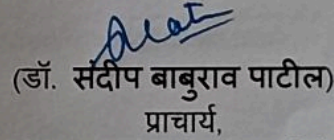 (डॉ. संदीप बाबुराव पाटील)
प्राचार्य,